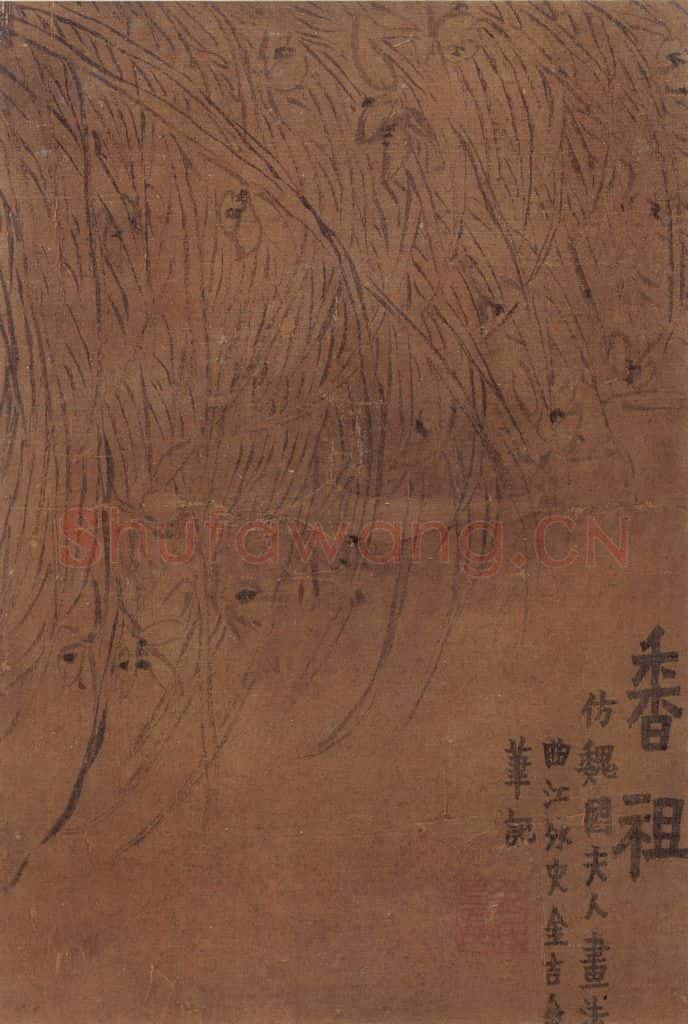 香祖
仿魏國夫人畫法
曲江外史金吉金
筆記
Shufawang.CN